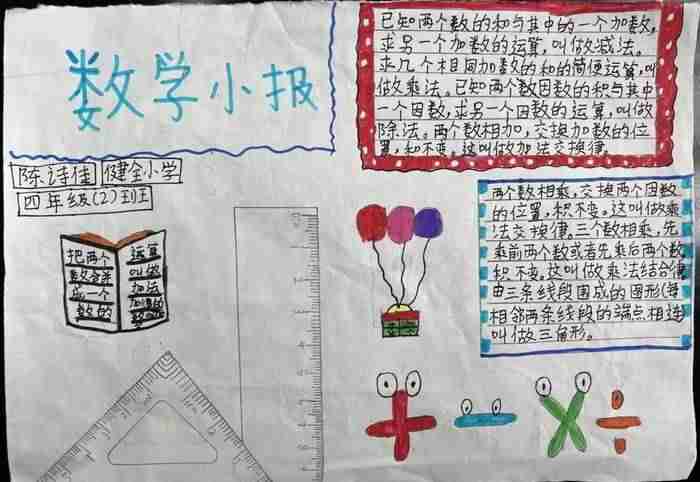 数学小报
陈诗佳 健全小学
四年级(2)班
把两个
数合并
成一个
数的
运算
叫做
加法
已知两个数的和与其中的一个加数,
求另一个加数的运算,叫做减法。
求几个相同加数的和的简便运算,叫
做乘法。已知两个数因数的积与其中
一个因数,求另一个因数的运算,叫做
除法。两个数相加,交换加数的位
置,和不变。这叫做加法交换律。
两个数相乘,交换两个因数
的位置,积不变。这叫做乘
法交换律。三个数相乘,先
乘前两个数或者先乘后两个数
积不变。这叫做乘法结合律
由三条线段围成的图形(每
相邻两条线段的端点相连
叫做三角形。
+ - × ÷